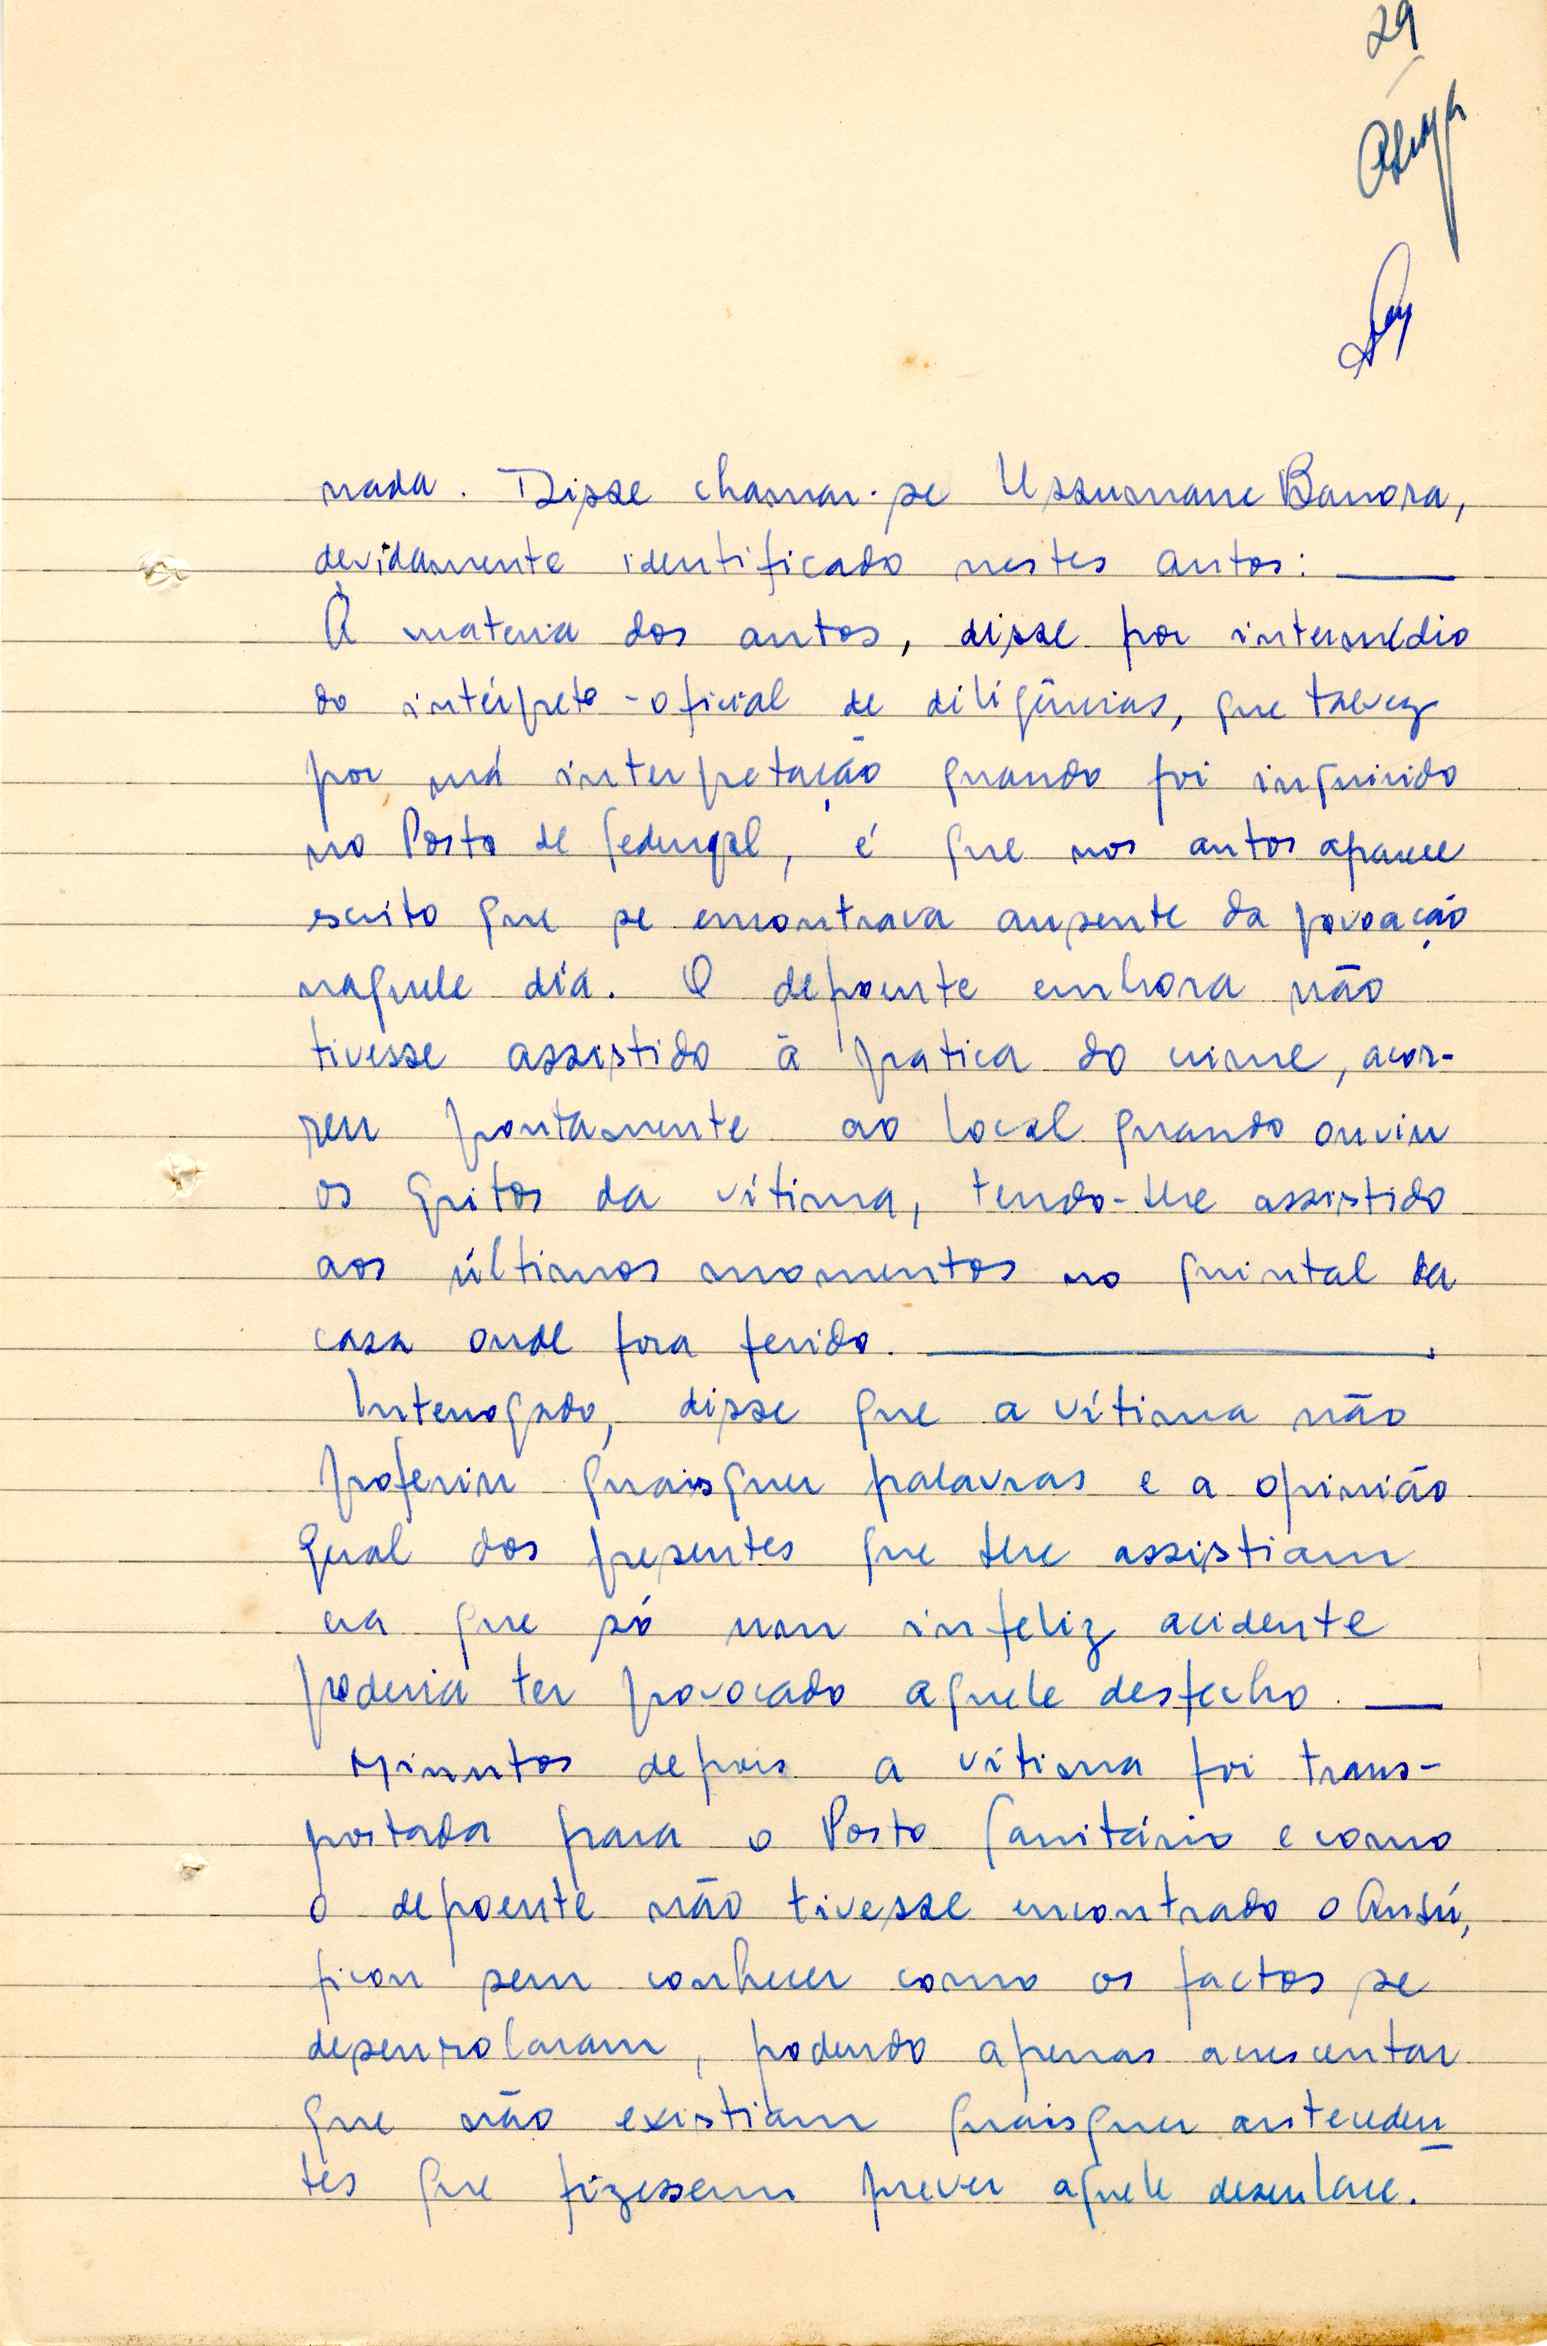 29
nada. Disse chamar-se Ussumane Banora,
devidamente identificado nestes autos: ——
À materia dos autos, disse por intermédio
do intérprete-oficial de diligências, que talvez
por má interpretação quando foi inquirido
no Posto de, é que nos autos aparece
escrito que se encontrava ausente da povoação
naquele dia. O depoente embora não
tivesse assistido à pratica do crime, acor-
reu prontamente ao local quando ouviu
os gritos da vítima, tendo-lhe assistido
aos últimos momentos no quintal da
casa onde fora ferido. ——
Interrogado, disse que a vítima não
proferiu quaisquer palavras e a opinião
geral dos presentes que lhe assistiam
era que só um infeliz acidente
poderia ter provocado aquele desfecho. ——
Minutos depois a vítima foi trans-
portada para o Posto Sanitário e como
o depoente não tivesse encontrado o Ansú,
ficou sem conhecer como os factos se
desenrolaram, podendo apenas acrescentar
que não existiam quaisquer anteceden
tes que fizessem prever aquele desenlace.